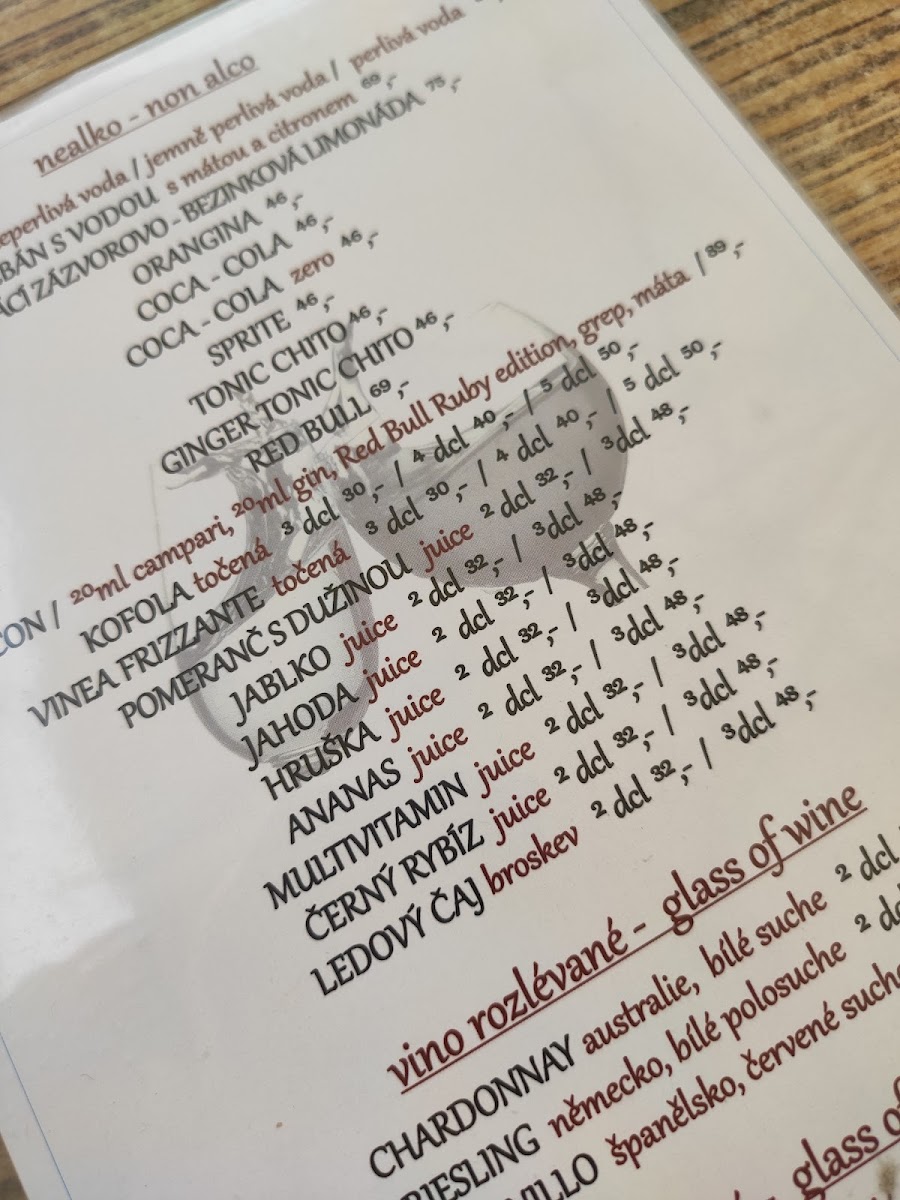 nealko - non alco
perlivá voda / jemně perlivá voda / perlivá voda
S VODOU s mátou a citronem 69,-
ZÁZVOROVO - BEZINKOVÁ LIMONÁDA 75,-
ORANGINA 46,-
COCA - COLA 46,-
COCA - COLA zero 46,-
SPRITE 46,-
TONIC CHITO 46,-
GINGER TONIC CHITO 46,-
RED BULL 69,-
/ 20ml campari, 20ml gin, Red Bull Ruby edition, grep, máta / 89,-
KOFOLA točená 3 dcl 30,- / 4 dcl 40,- / 5 dcl 50,-
VINEA FRIZZANTE točená 3 dcl 30,- / 4 dcl 40,- / 5 dcl 50,-
POMERANČ S DUŽINOU juice 2 dcl 32,- / 3dcl 48,-
JABLKO juice 2 dcl 32,- / 3dcl 48,-
JAHODA juice 2 dcl 32,- / 3dcl 48,-
HRUŠKA juice 2 dcl 32,- / 3dcl 48,-
ANANAS juice 2 dcl 32,- / 3dcl 48,-
MULTIVITAMIN juice 2 dcl 32,- / 3dcl 48,-
ČERNÝ RYBÍZ juice 2 dcl 32,- / 3dcl 48,-
LEDOVÝ ČAJ broskev 2 dcl 32,- / 3dcl 48,-
víno rozlévané - glass of wine
CHARDONNAY australie, bílé suche 2 dcl
RIESLING německo, bílé polosuche 2
španělsko, červené suche
glass of